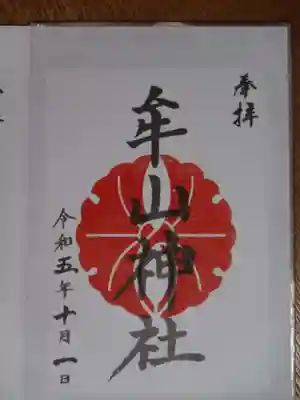 奉拝
牟山神社
令和五年十月一日